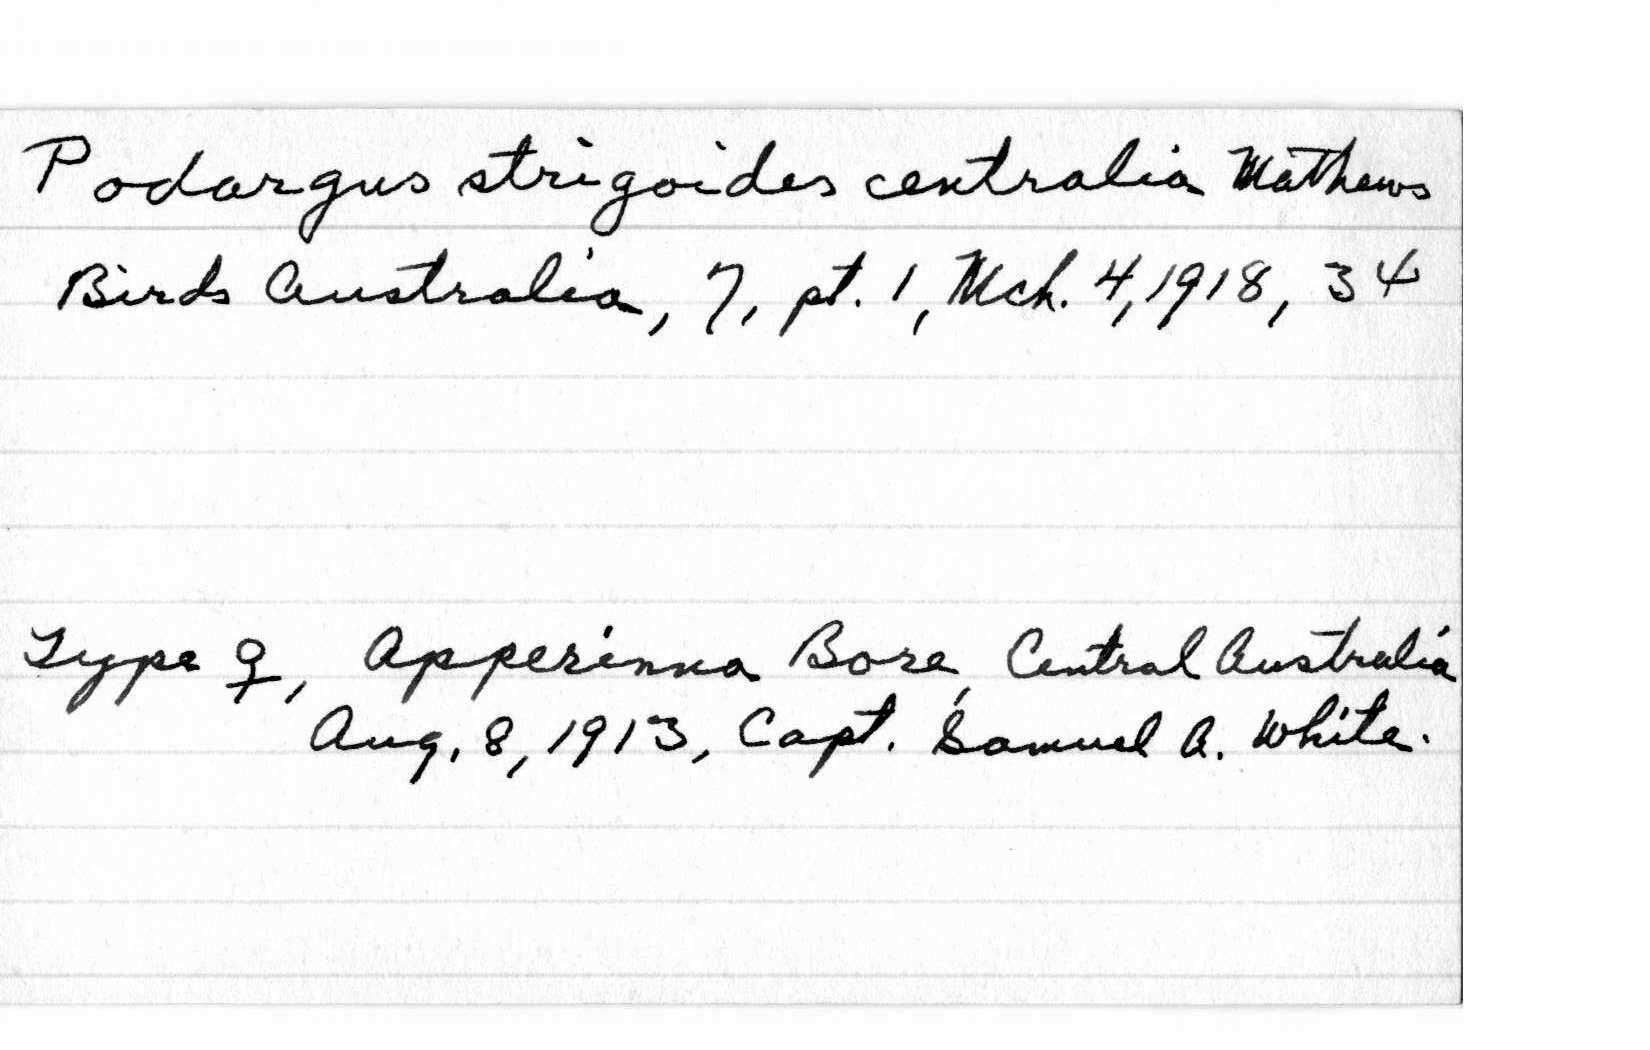 Podargus strigoides centralia Mathews
Birds Australia, 7, pt. 1, Mch. 4, 1918, 34
Type ♀, Apperinna Bore, Central Australia
Aug. 8, 1913, Capt. Samuel A. White.